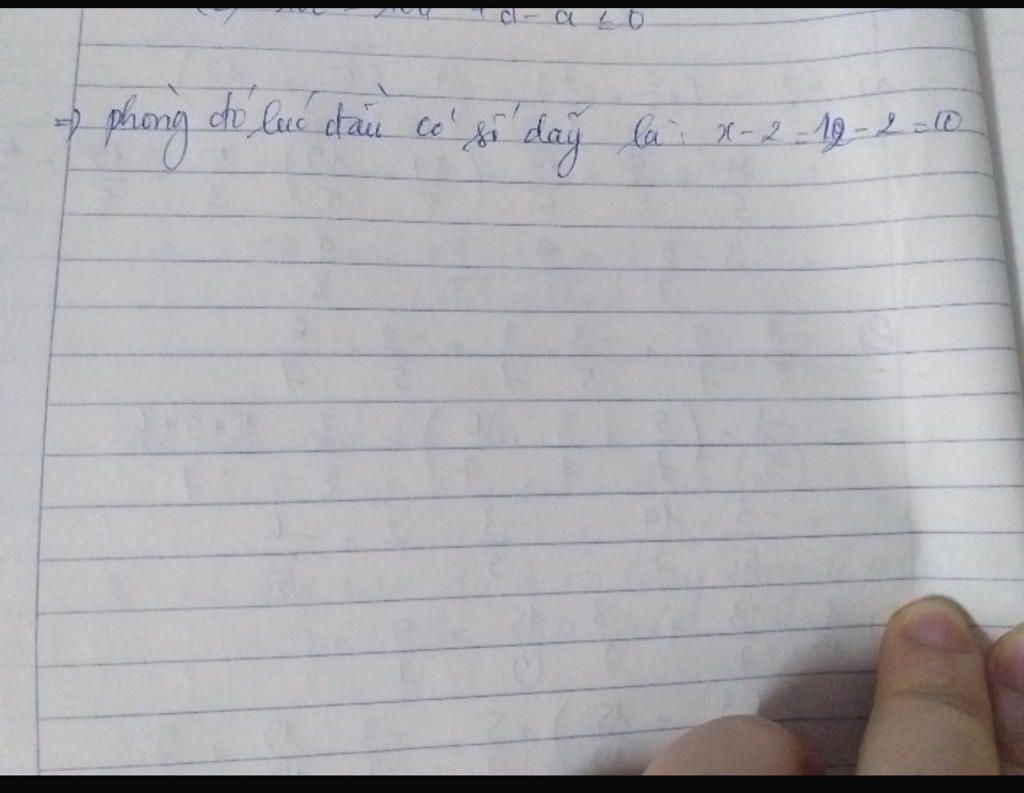 + d - a ≤ 0
=> phòng đó lúc đầu có số dãy là: x - 2 = 12 - 2 = 10